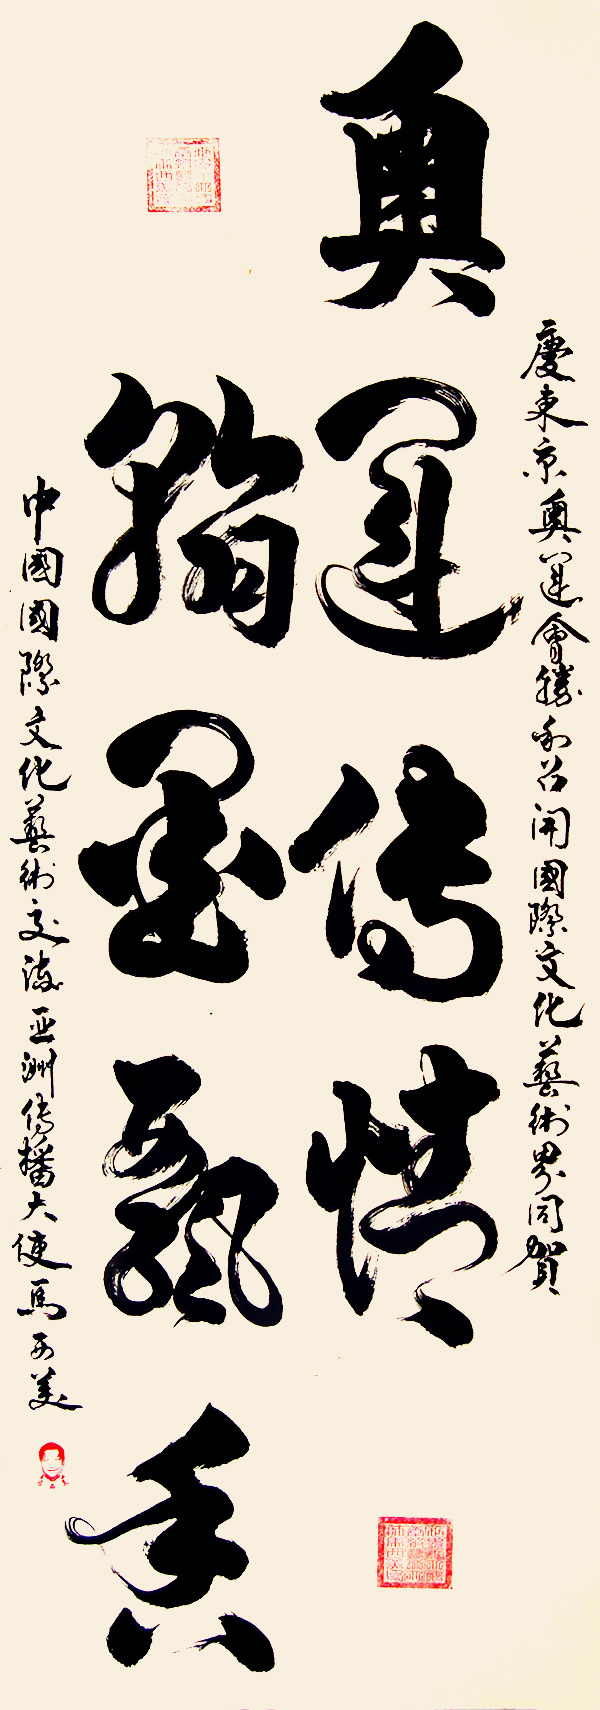 慶東京奧運會勝利召開國際文化藝術界同賀
奧運传情
翰墨飘香
中國國際文化藝術交流亚洲传播大使馬西美